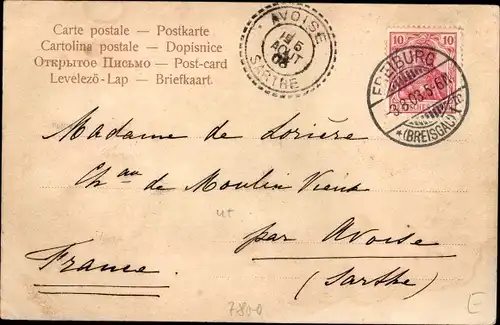 Carte postale — Postkarte
Cartolina postale — Dopisnice
Открытое Письмо — Post-card
Levelező-Lap — Briefkaart.
AVOISE
5
AOUT
03
SARTHE
10 10
FREIBURG
3.8.03.5-6N.
*(BREISGAU)*
Madame de Lorière
Ch au de Moulin Vieux
par Avoise
France.
(Sarthe)
7800
E